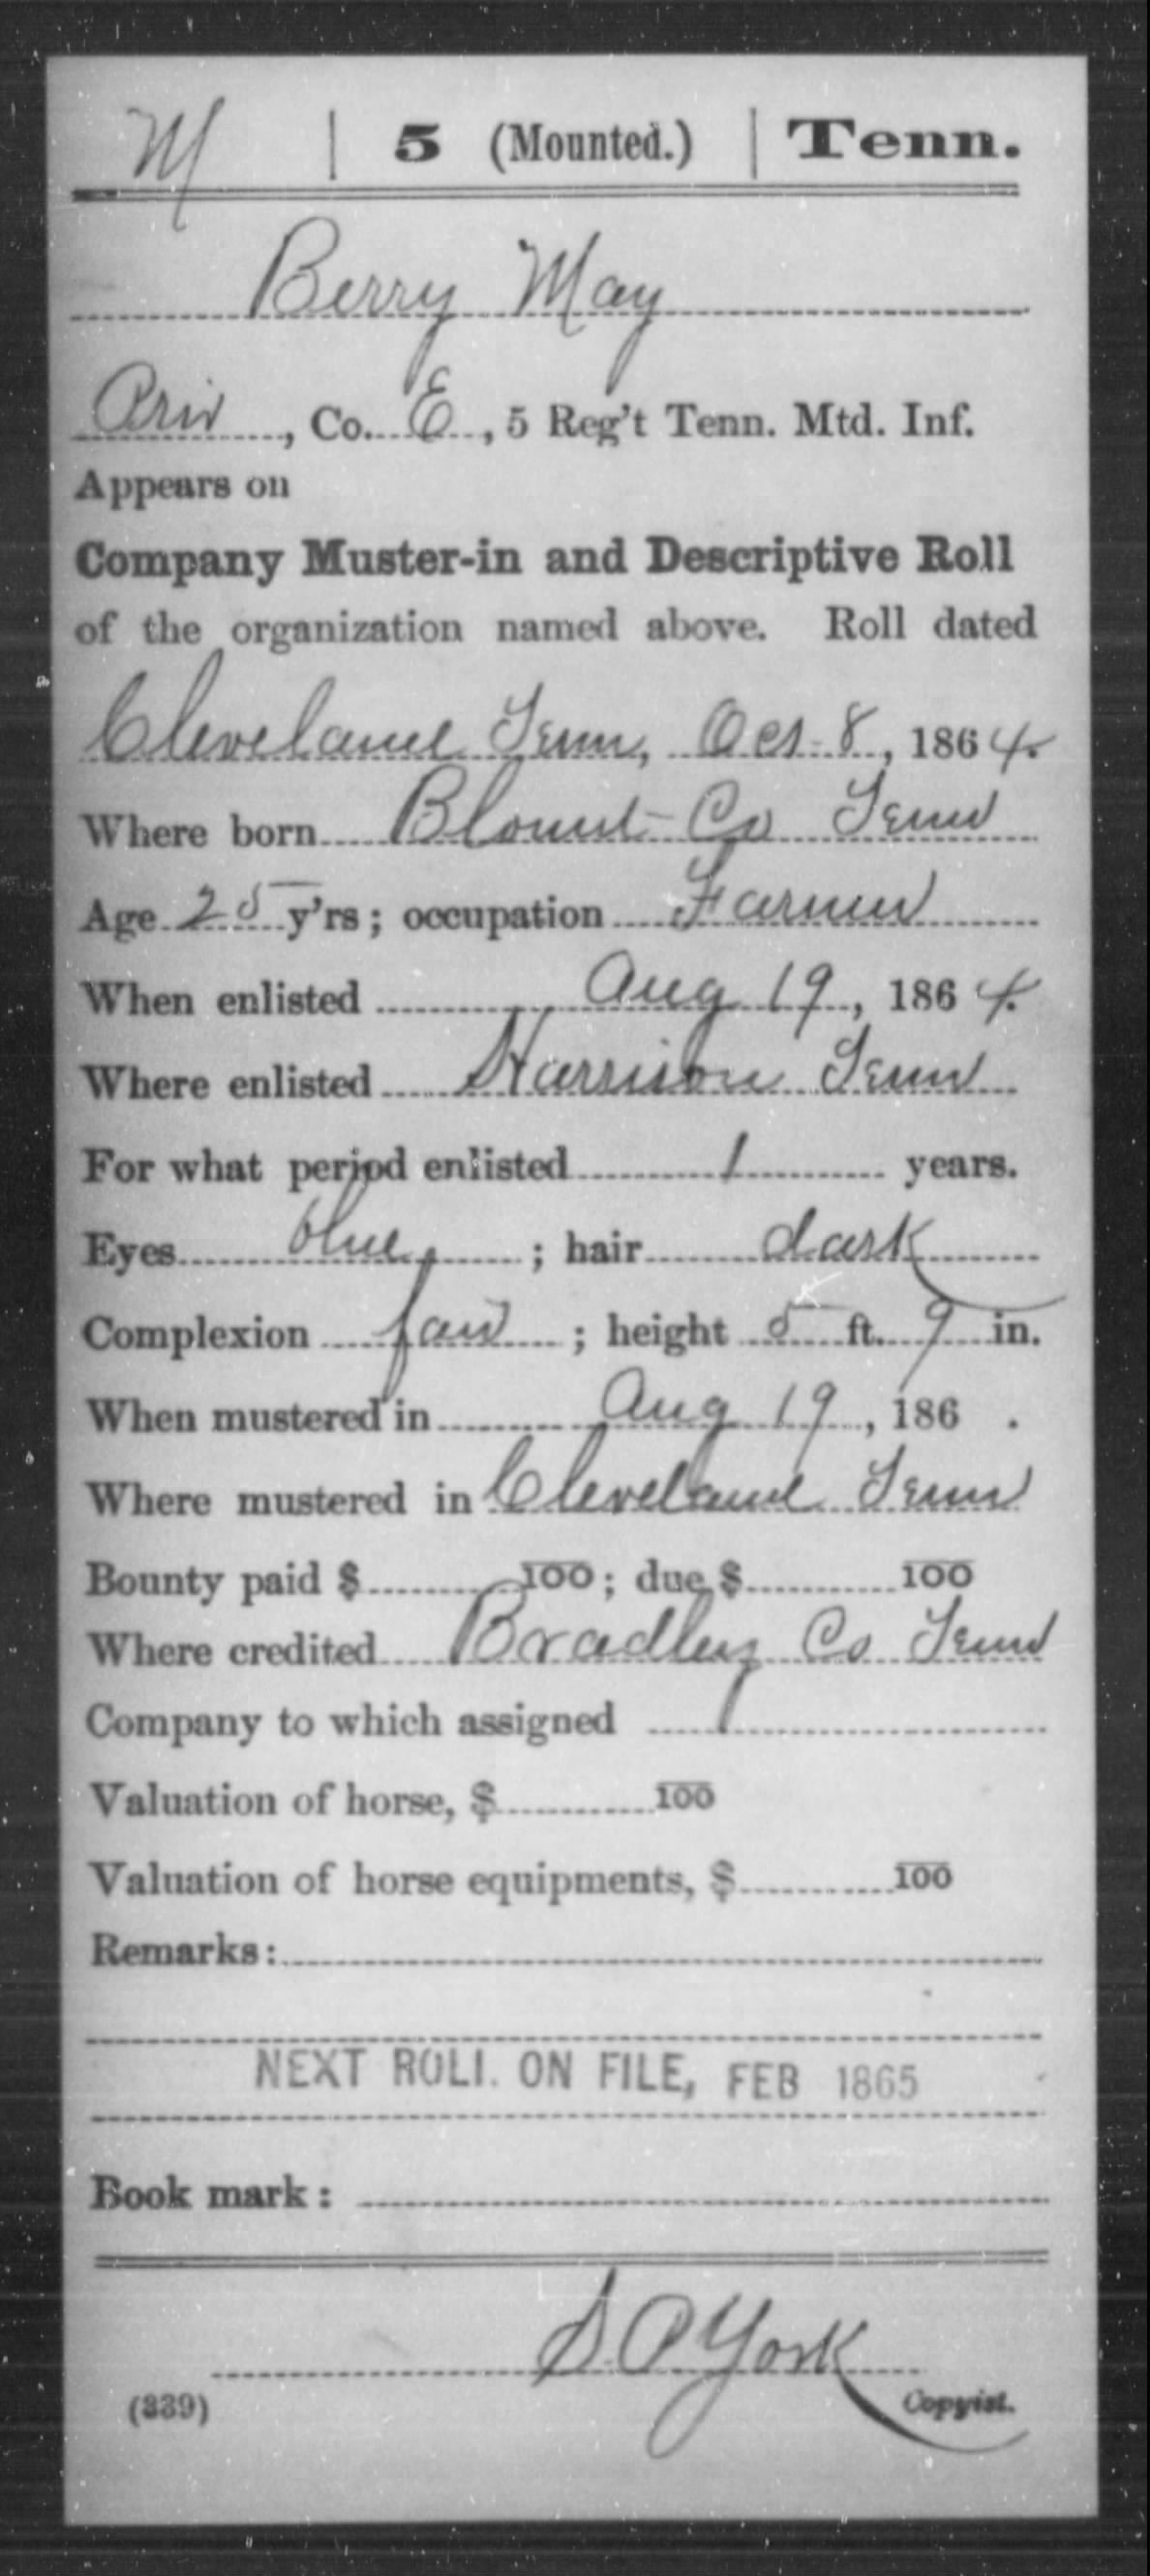 M | 5 (Mounted.) | Tenn.
Berry May
Priv, Co. E, 5 Reg't Tenn. Mtd. Inf.
Appears on
Company Muster-in and Descriptive Roll
of the organization named above. Roll dated
Cleveland Tenn, Oct 8, 1864.
Where born Blount Co Tenn
Age 25 y'rs; occupation Farmer
When enlisted Aug 19, 1864.
Where enlisted Harrison Tenn
For what period enlisted 1 years.
Eyes blue; hair dark
Complexion fair; height 5 ft. 9 in.
When mustered in Aug 19, 186 .
Where mustered in Cleveland Tenn
Bounty paid $ 100; due $ 100
Where credited Bradley Co Tenn
Company to which assigned
Valuation of horse, $ 100
Valuation of horse equipments, $ 100
Remarks:
NEXT ROLL ON FILE, FEB 1865
Book mark:
S. P. York
(339) Copyist.